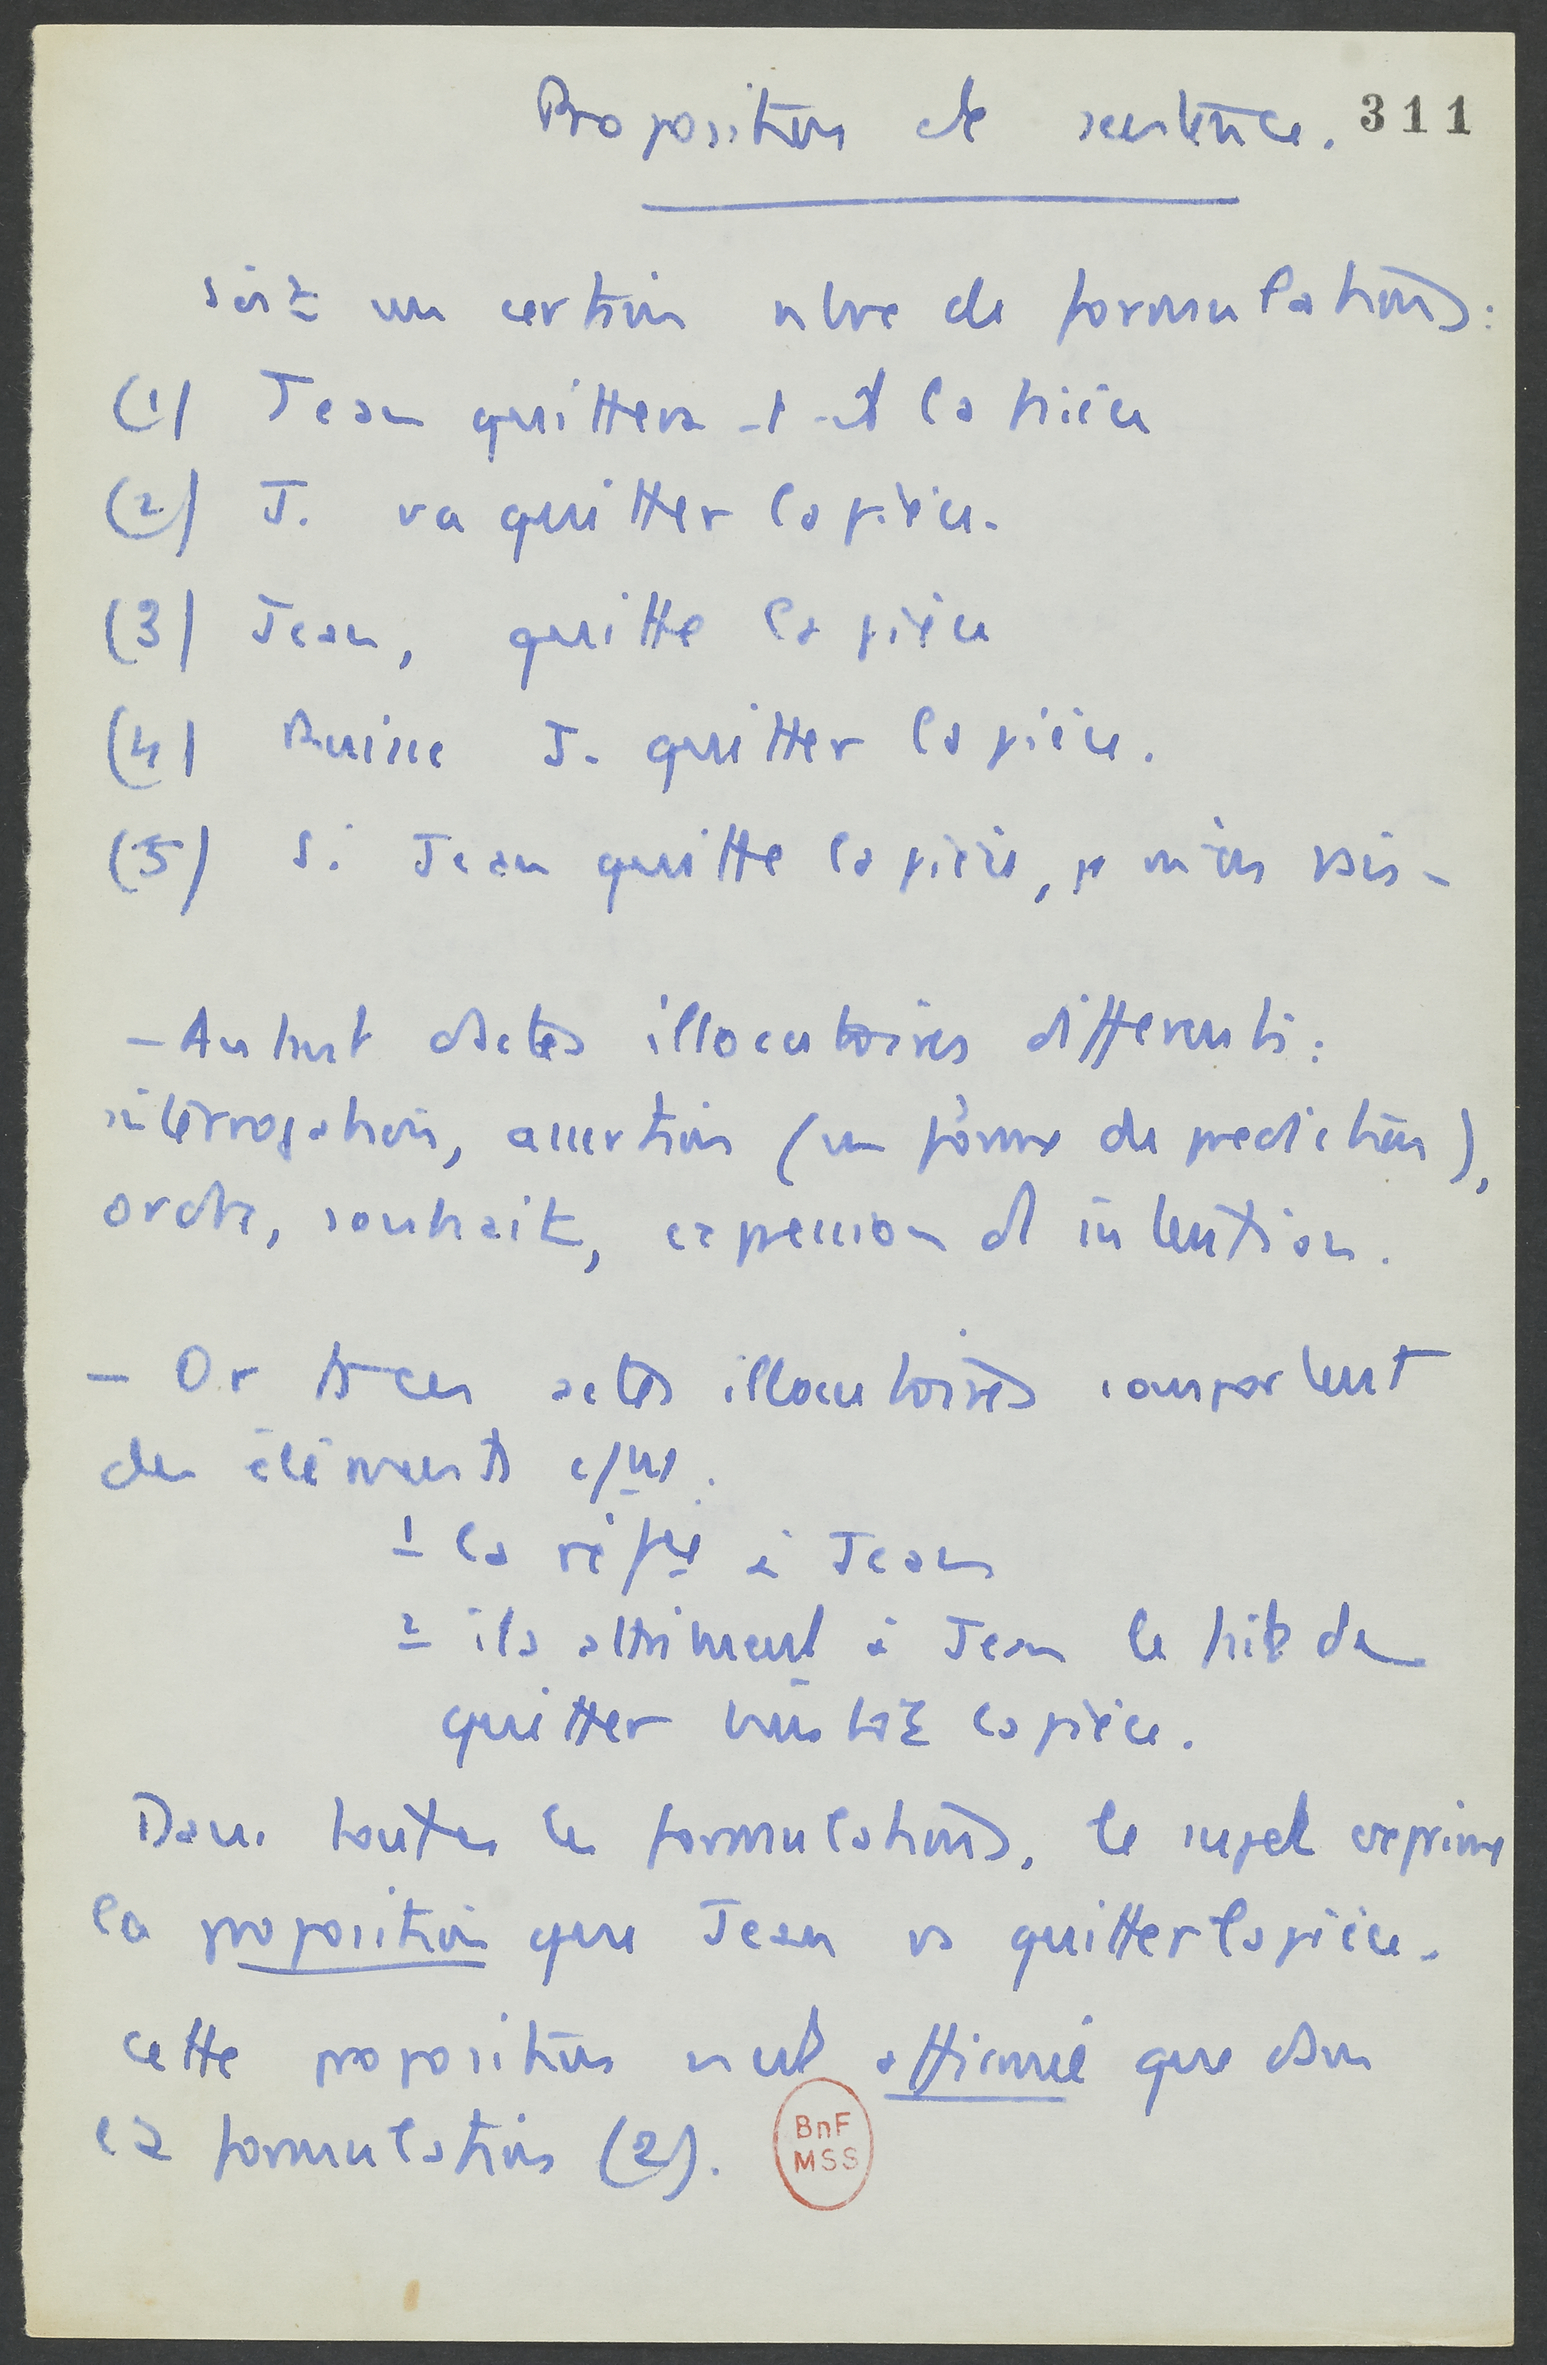 Proposition et sentence. 311
soit un certain nbre de formulations :
(1) Jean quittera-t-il la pièce
(2) J. va quitter la pièce.
(3) Jean, quitte la pièce
(4) Puisse J. quitter la pièce.
(5) Si Jean quitte la pièce, je m'en vais -
- Autant d'actes illocutoires différents :
interrogation, assertion (en forme de prediction),
ordre, souhait, expression d'intention.
- Or ts ces actes illocutoires comportent
des éléments c/ns :
1 la réf à Jean
2 ils attribuent à Jean le fait de
quitter la pièce.
Dans toutes les formulations, le sujet exprime
la proposition que Jean va quitter la pièce.
cette proposition n'est affirmée que dans
la formulation (2).
BnF
MSS